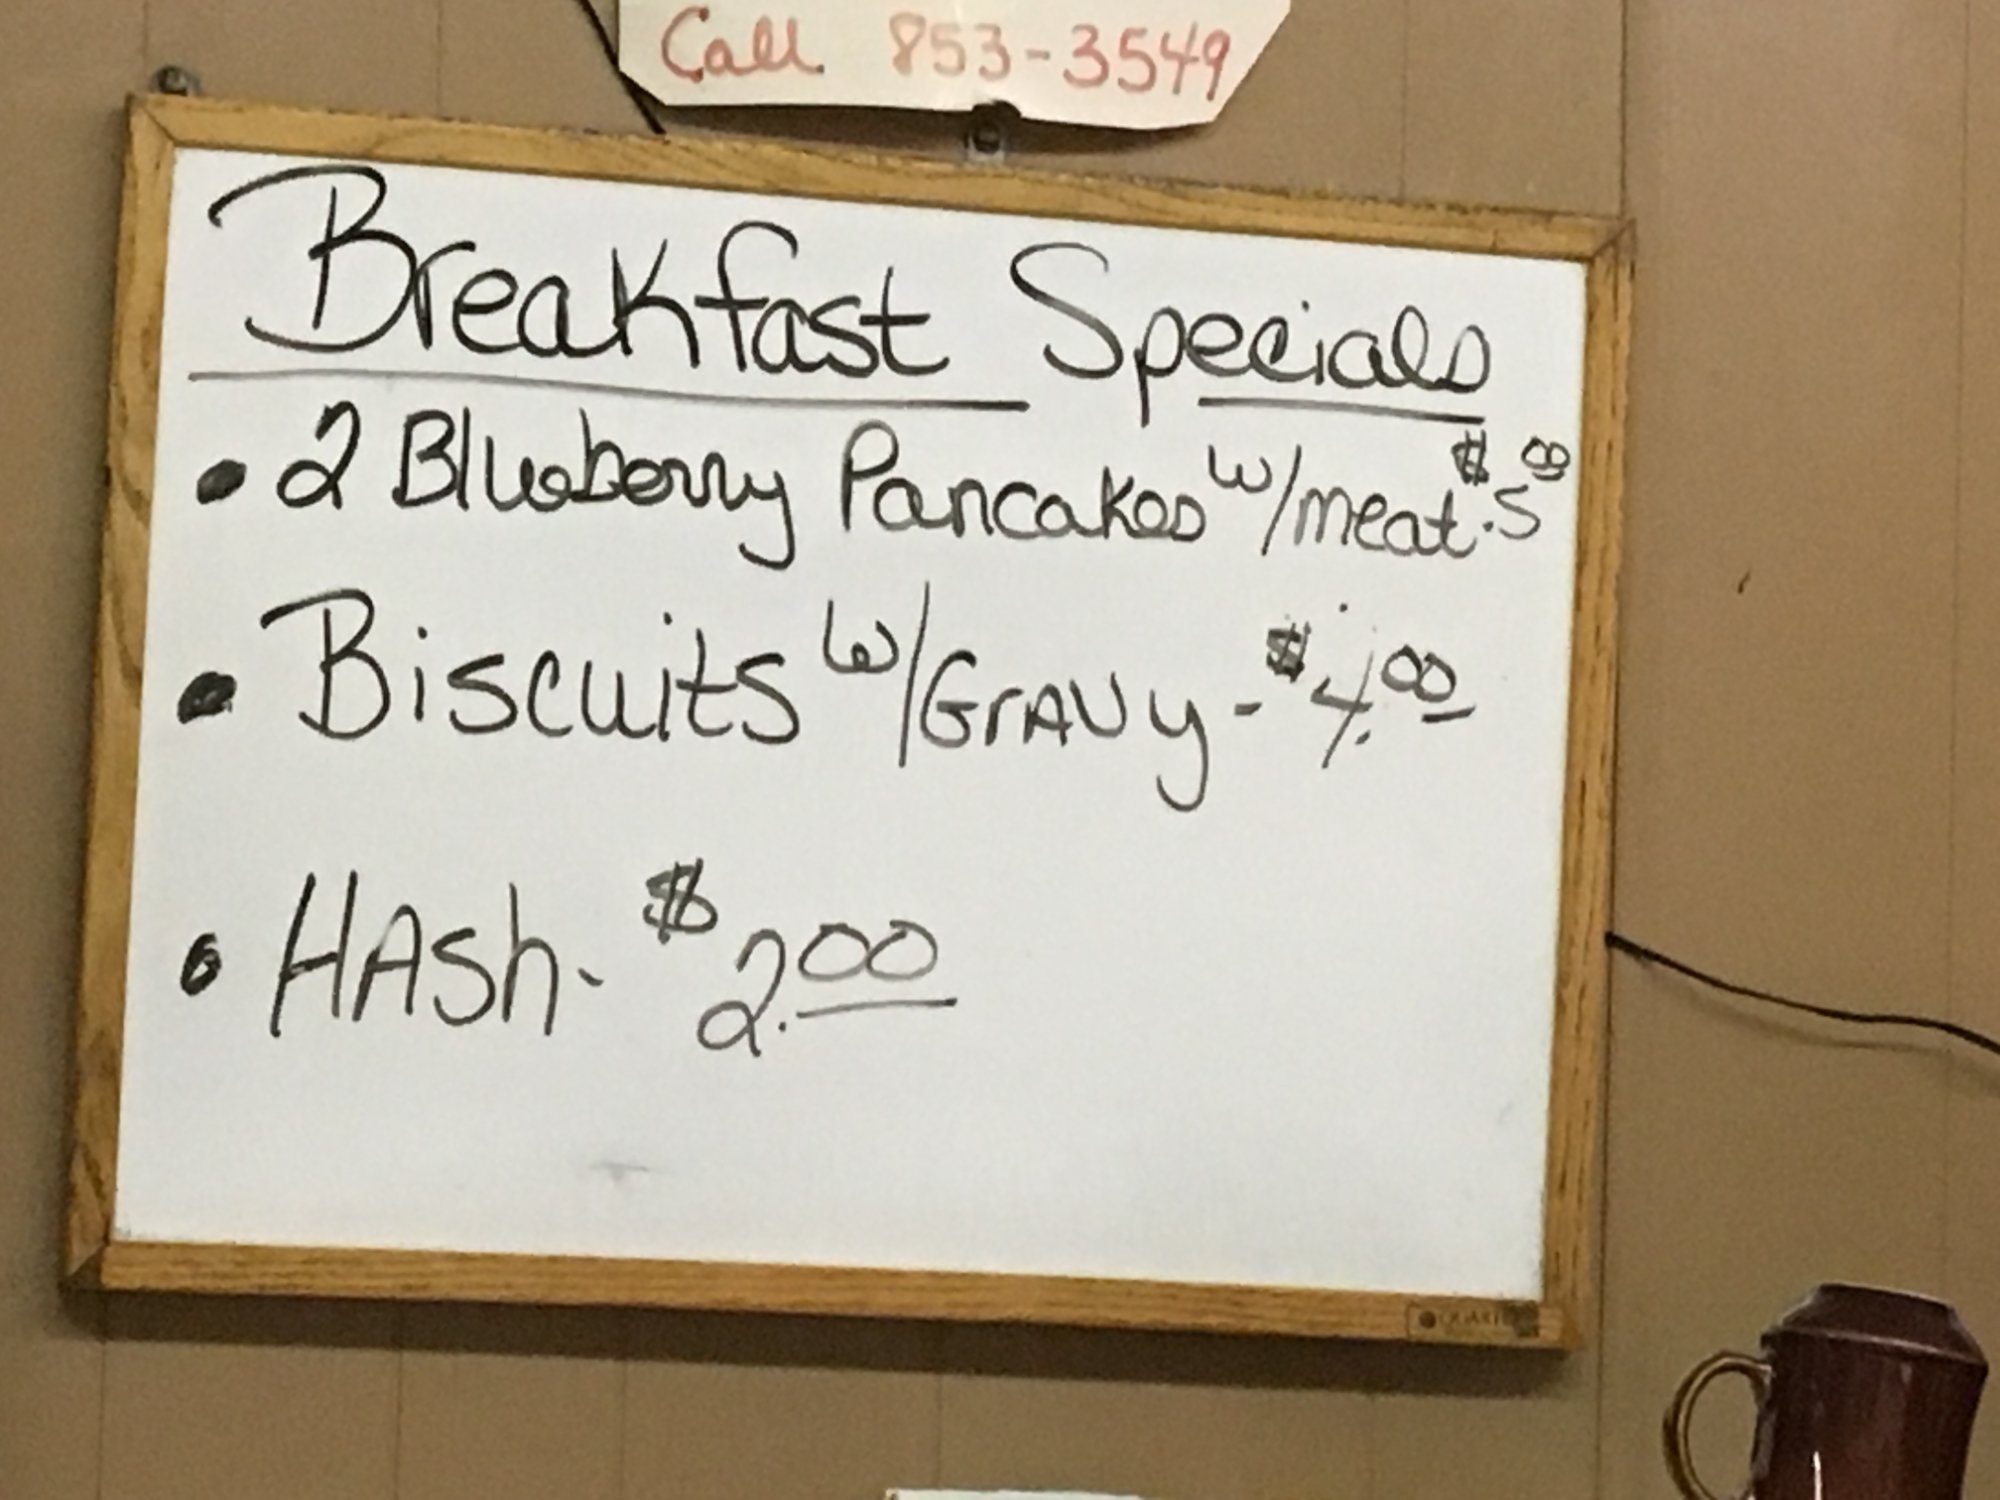 Call 853-3549
Breakfast Specials
• 2 Blueberry Pancakes w/meat $.5 00
• Biscuits w/GrAVy - $4.00
• HAsh - $2.00